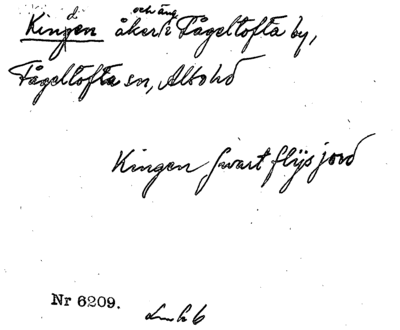 Kingen åker och äng i Fågeltofta by,
Fågeltofta sn, Albo hd
Kingen swart flÿs jord
Nr 6209.